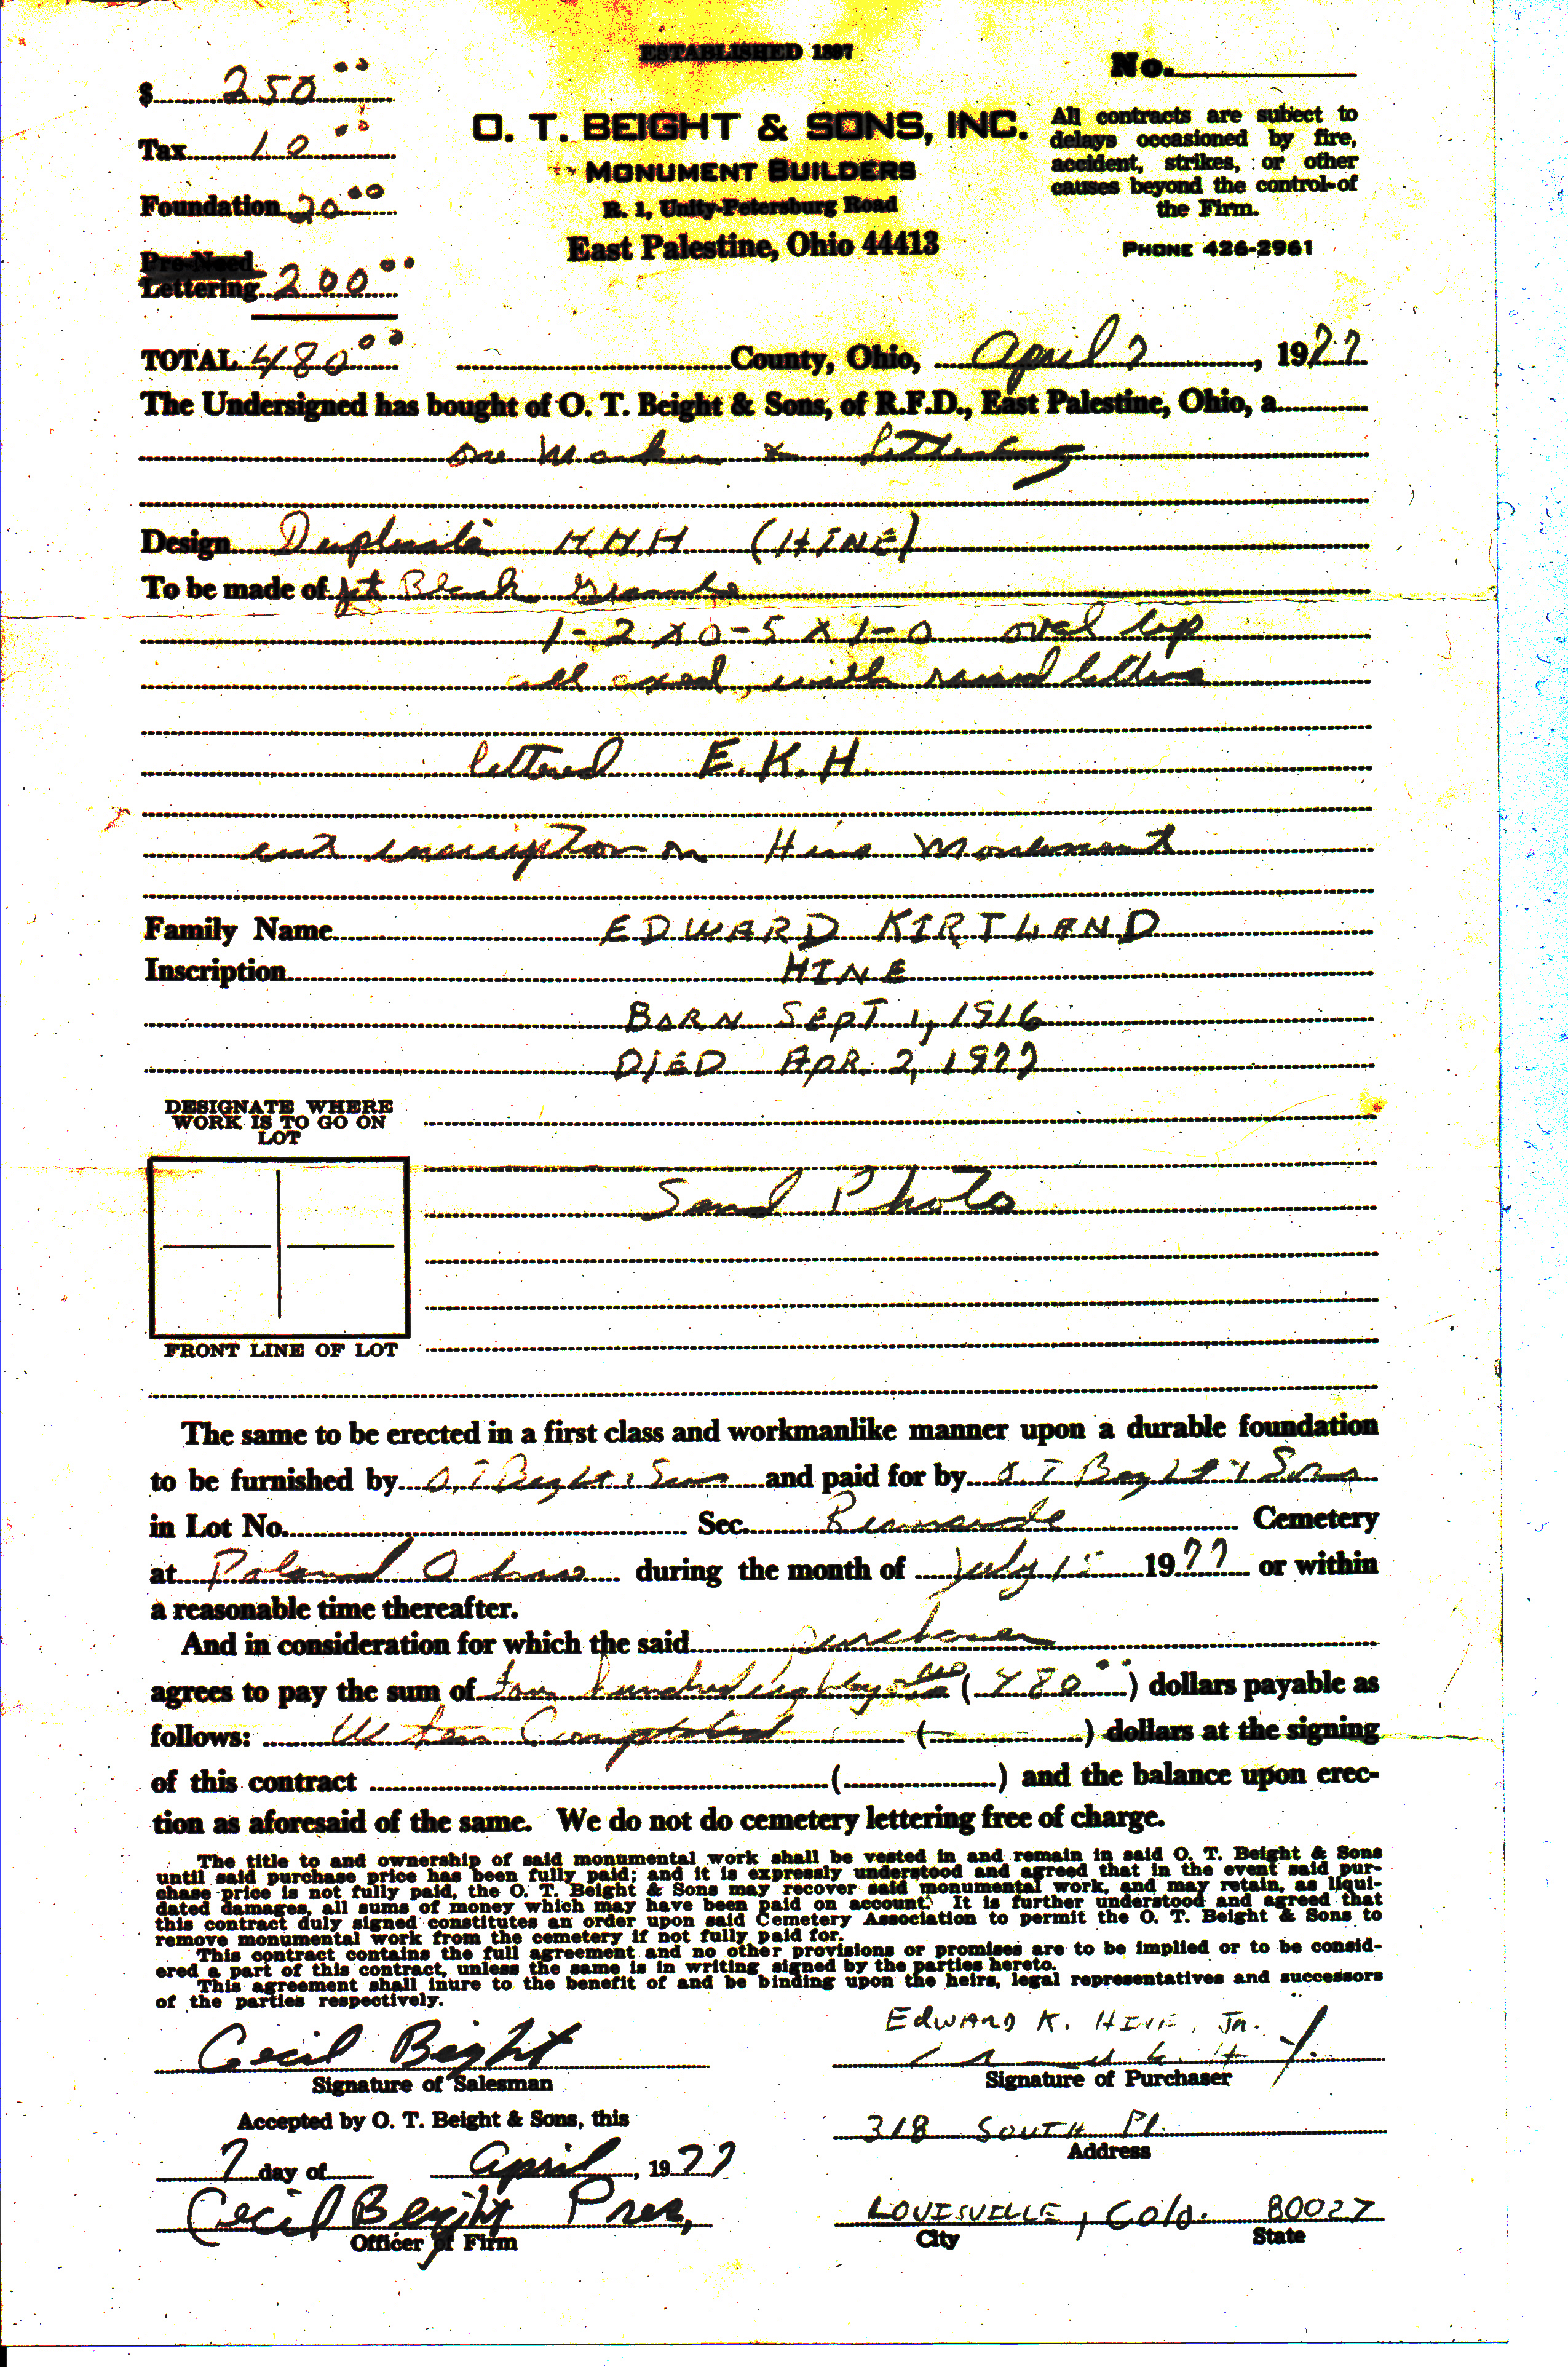 ESTABLISHED 1897
$ 250 00
No.
Tax 10 00
O. T. BEIGHT & SONS, INC.
All contracts are subject to
delays occasioned by fire,
accident, strikes, or other
causes beyond the control of
the Firm.
MONUMENT BUILDERS
Foundation 20 00
R. 1, Unity-Petersburg Road
East Palestine, Ohio 44413
PHONE 426-2961
Pre-Need
Lettering 200 00
TOTAL 480 00 County, Ohio, April 7, 1977
The Undersigned has bought of O. T. Beight & Sons, of R.F.D., East Palestine, Ohio, a
one Marker & lettering
Design Duplicate H.M.H (HINE)
To be made of Jet Black Granite
1-2 x 0-5 x 1-0 oval top
all axed, with raised letters
lettered E.K.H.
cut inscription on Hine Monument
Family Name EDWARD KIRTLAND
Inscription HINE
BORN SEPT 1, 1916
DIED APR. 2, 1977
DESIGNATE WHERE
WORK IS TO GO ON
LOT
Send Photo
FRONT LINE OF LOT
The same to be erected in a first class and workmanlike manner upon a durable foundation
to be furnished by O.T. Beight & Sons and paid for by O T Beight & Sons
in Lot No. Sec. Cemetery
at Poland Ohio during the month of July 15 1977 or within
a reasonable time thereafter.
And in consideration for which the said purchaser
agrees to pay the sum of four hundred eighty (480 00) dollars payable as
follows: When Completed ( ) dollars at the signing
of this contract ( ) and the balance upon erec-
tion as aforesaid of the same. We do not do cemetery lettering free of charge.
The title to and ownership of said monumental work shall be vested in and remain in said O. T. Beight & Sons
until said purchase price has been fully paid; and it is expressly understood and agreed that in the event said pur-
chase price is not fully paid, the O. T. Beight & Sons may recover said monumental work, and may retain, as liqui-
dated damages, all sums of money which may have been paid on account. It is further understood and agreed that
this contract duly signed constitutes an order upon said Cemetery Association to permit the O. T. Beight & Sons to
remove monumental work from the cemetery if not fully paid for.
This contract contains the full agreement and no other provisions or promises are to be implied or to be consid-
ered a part of this contract, unless the same is in writing signed by the parties hereto.
This agreement shall inure to the benefit of and be binding upon the heirs, legal representatives and successors
of the parties respectively.
EDWARD K. HINE, JR.
Cecil Beight
Signature of Salesman
Signature of Purchaser
Accepted by O. T. Beight & Sons, this
318 SOUTH Pl.
Address
7 day of April, 1977
Cecil Beight Pres,
Officer of Firm
LOUISVILLE, Colo. 80027
City State